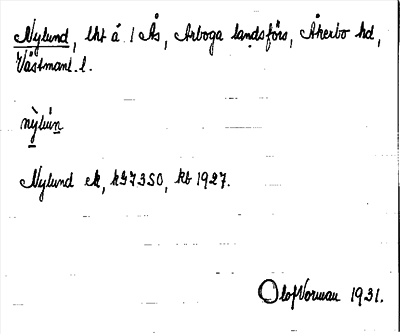 Nylund, lht å 1 Ås, Arboga landsförs, Åkerbo hd,
Västmanl. l.
nỳlún
Nylund ek, kG7350, kb 1927.
Olof Norman 1931.